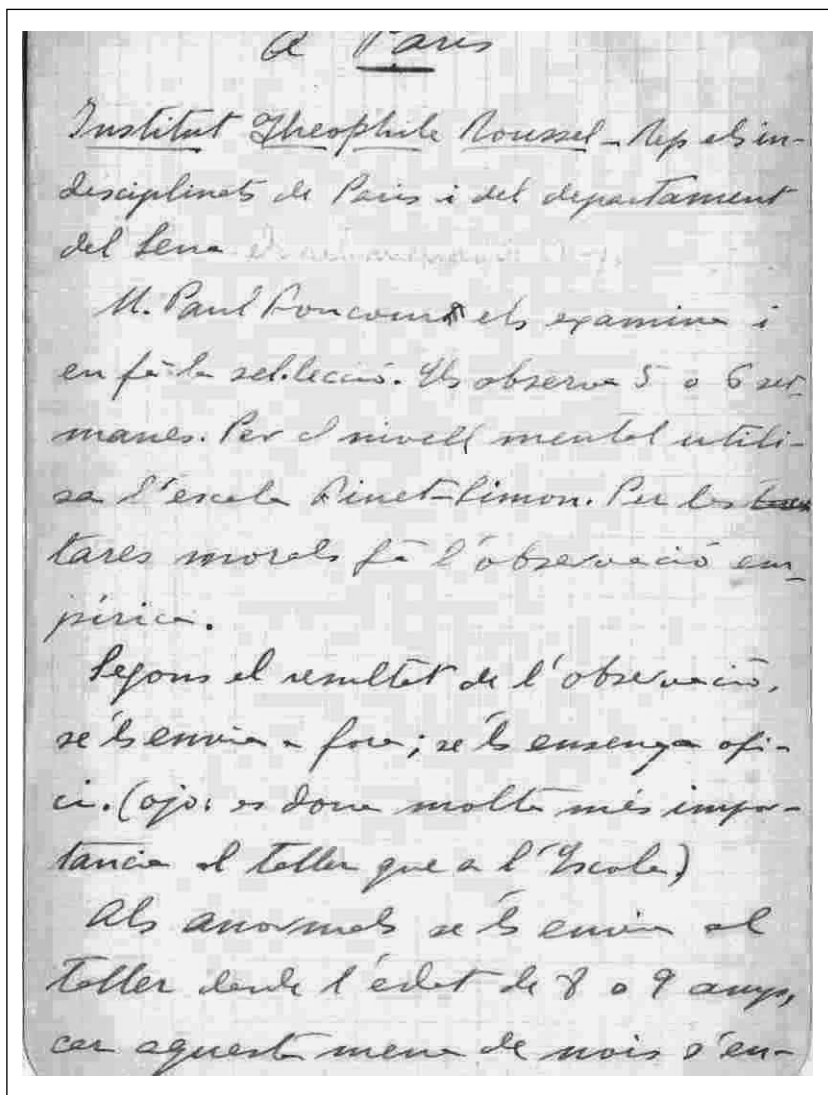 A Paris
Institut Theophile Roussel - Rep els in-
disciplinats de Paris i del departament
del Sena
M. Paul Boncourt els examina i
en fà la sel·lecció. Els observa 5 o 6 set-
manes. Per el nivell mental utili-
sa l'escala Binet-Simon. Per les
tares morals fà l'observació em-
pírica.
Segons el resultat de l'observació,
se'ls envia a fora; se'ls ensenya ofi-
ci. (ojo: es dona molta més impor-
tancia al taller que a l'Escola)
Als anormals se'ls envia al
taller desde l'edat de 8 o 9 anys,
car aquesta mena de nois s'en-